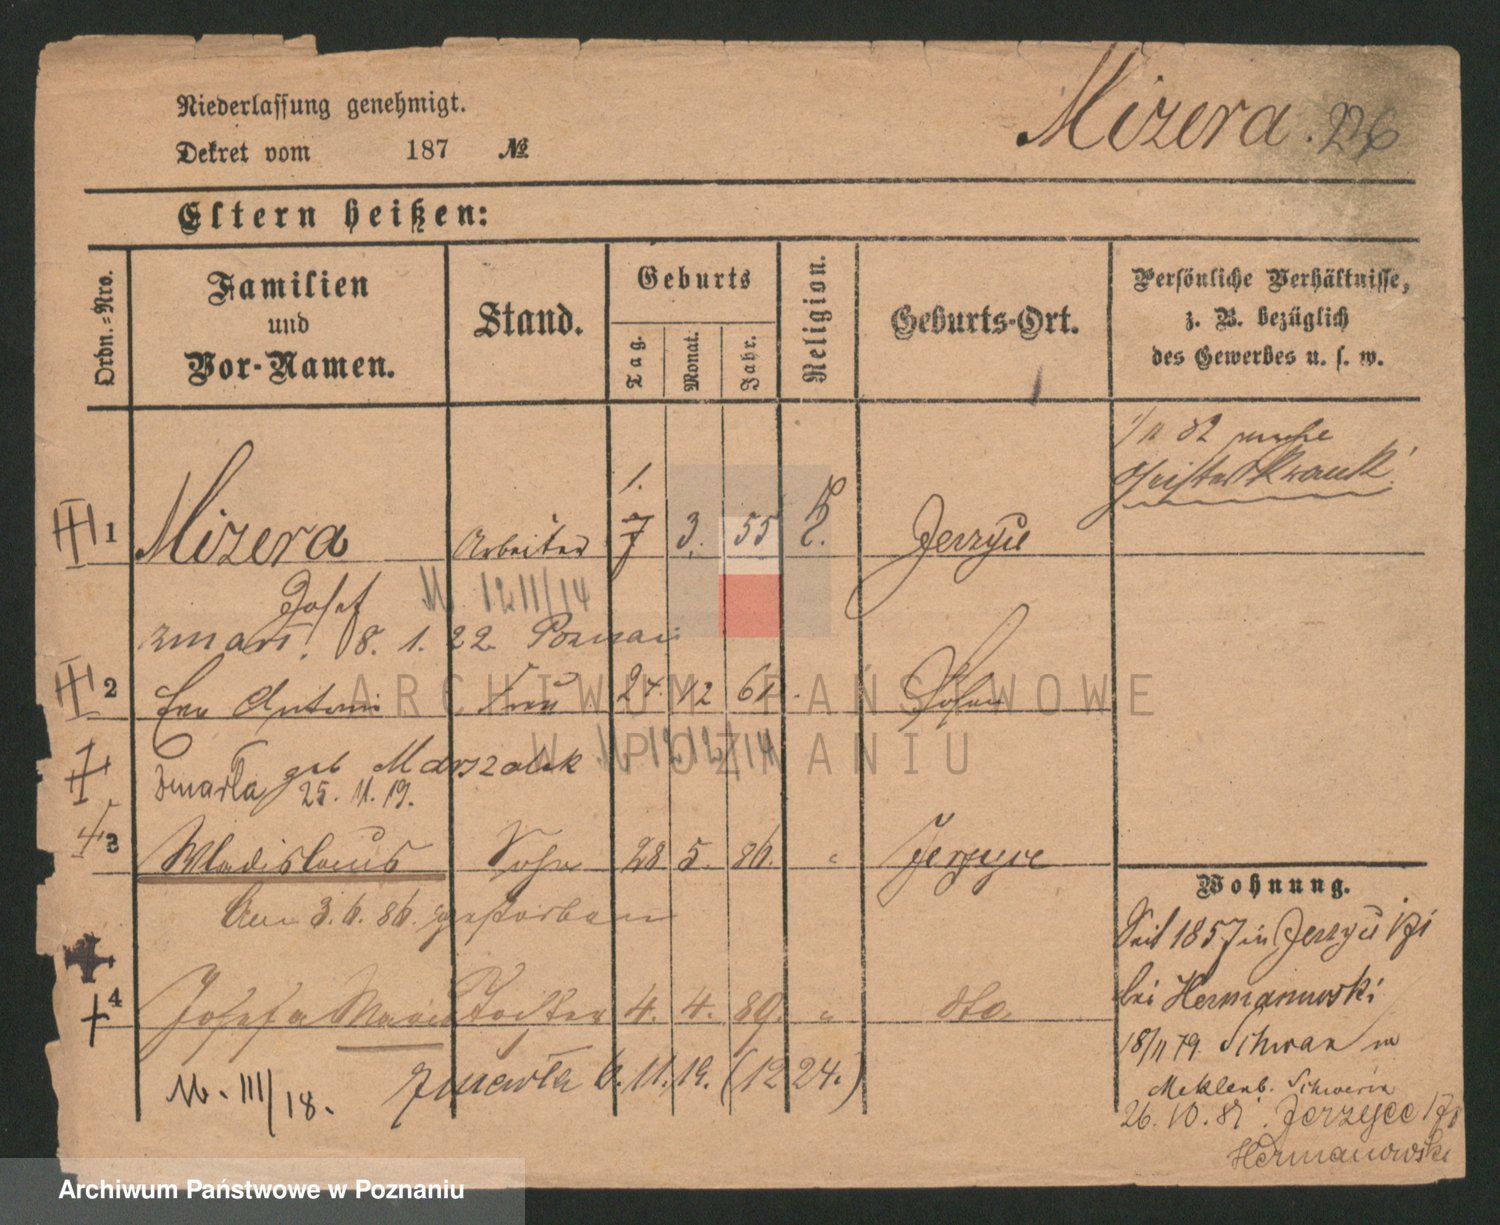 Niederlassung genehmigt.
Mizera. 226
Dekret vom 187 №
Eltern heißen:
Ordn.=Nro.
Familien
und
Vor-Namen.
Stand.
Geburts
Tag.
Monat.
Jahr.
Religion.
Geburts-Ort.
Persönliche Verhältnisse,
z. B. bezüglich
des Gewerbes u. s. w.
82
Geisteskrank
1.
1 Mizera Arbeiter 7 3. 55 Jerzyce
Josef M. 12 11/14
zmarł 8. 1. 22 Poznań
2 Antonie Frau 24. 12 61. Posen
geb Marszalek M. 12 12/14
zmarła 25. 11. 19.
3 Wladislaus Sohn 28 5. 86. " Jerzyce
Am 3. 6. 86. gestorben
4 Josefa Maria Tochter 4. 4. 89. " dto
zmarła 6. 11. 19. (1224.)
M. III/18.
Wohnung.
Seit 1857 in Jerzyce 171
bei Hermanowski
18/11 79 Schwan in
Meklenb. Schwerin
26. 10. 81. Jerzyce 171
Hermanowski
ARCHIWUM PAŃSTWOWE
W POZNANIU
Archiwum Państwowe w Poznaniu